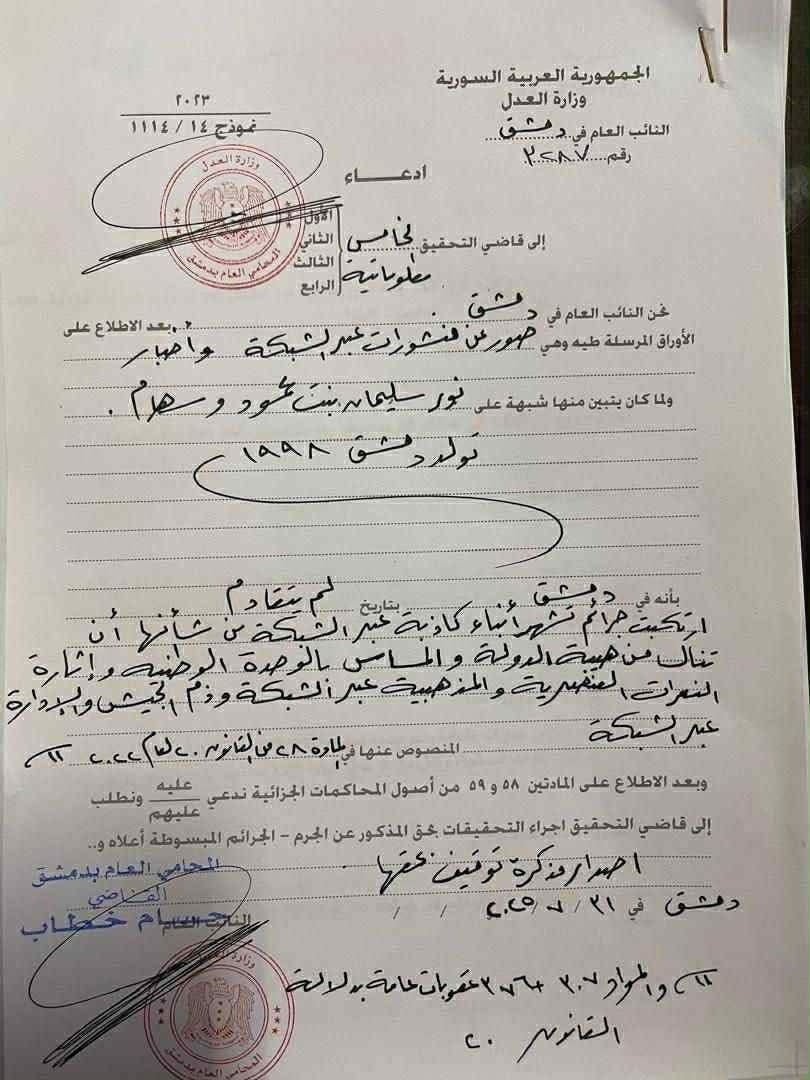 الجمهورية العربية السورية
وزارة العدل
النائب العام في دمشق
رقم ٣٢٨٧
٢٠٢٣
نموذج ١٤ / ١١١٤
وزارة العدل
المحامي العام بدمشق
ادعـــاء
إلى قاضي التحقيق الخامس
معلوماتية
الأول
الثاني
الثالث
الرابع
نحن النائب العام في دمشق بعد الاطلاع على
الأوراق المرسلة طيه وهي صور عن منشورات عبر الشبكة واخبار
ولما كان يتبين منها شبهة على نور سليمان بنت محمود وسهام .
تولد دمشق ١٩٩٨
بأنه في دمشق بتاريخ لم يتقادم
ارتكبت جرائم نشر أنباء كاذبة عبر الشبكة من شأنها أن
تنال من هيبة الدولة والمساس بالوحدة الوطنية وإثارة
النعرات العنصرية والمذهبية عبر الشبكة وذم الجيش والإدارة
عبر الشبكة
المنصوص عنها في المادة ٢٨ من القانون ٢٠ لعام ٢٠٢٢
وبعد الاطلاع على المادتين ٥٨ و ٥٩ من أصول المحاكمات الجزائية ندعي عليه عليهم ونطلب
إلى قاضي التحقيق اجراء التحقيقات بحق المذكور عن الجرم – الجرائم المبسوطة أعلاه و..
اصدار مذكرة توقيف بحقها
دمشق في ٣١ / ٧ / ٢٠٢٥ / /
المحامي العام بدمشق
القاضي
حسام خطاب
النائب العام
وزارة العدل
المحامي العام بدمشق
والمواد ٣٠٧ + ٣٧٦ عقوبات عامة بدلالة
القانون ٢٠